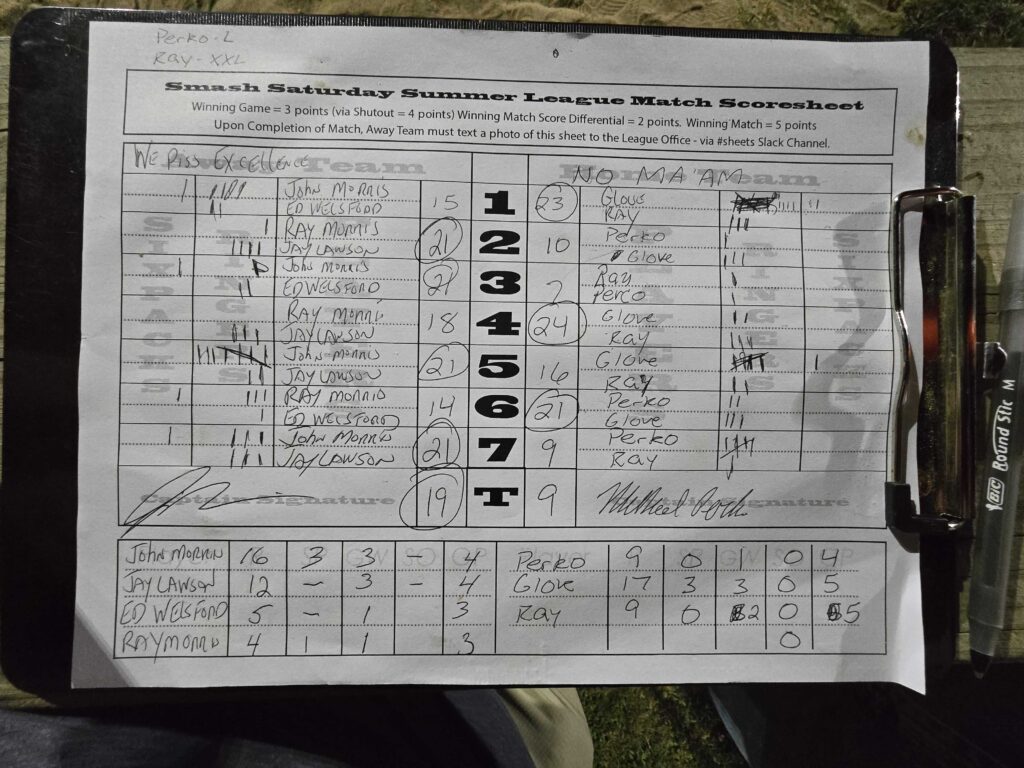 Perko - L
Ray - XXL
Smash Saturday Summer League Match Scoresheet
Winning Game = 3 points (via Shutout = 4 points) Winning Match Score Differential = 2 points. Winning Match = 5 points
Upon Completion of Match, Away Team must text a photo of this sheet to the League Office - via #sheets Slack Channel.
WE PISS EXCELLENCE Team NO MA AM Team
JOHN MORRIS 15 1 23 Glove
ED WELSFORD RAY
RAY MORRIS 21 2 10 Perko
JAY LAWSON Glove
JOHN MORRIS 21 3 7 Ray
ED WELSFORD Perco
RAY MORRIS 18 4 24 Glove
JAY LAWSON Ray
JOHN MORRIS 21 5 16 Glove
JAY LAWSON Ray
RAY MORRIS 14 6 21 Perko
ED WELSFORD Glove
JOHN MORRIS 21 7 9 Perko
JAY LAWSON Ray
SIXPACKS RINGERS RINGERS SIXPACKS
Captain Signature 19 T 9 Captain Signature
JOHN MORRIS 16 3 3 - 4 Perko 9 0 1 0 4
JAY LAWSON 12 - 3 - 4 Glove 17 3 3 0 5
ED WELSFORD 5 - 1 3 Ray 9 0 2 0 5
RAY MORRIS 4 1 1 3 0
BIC Round Stic M